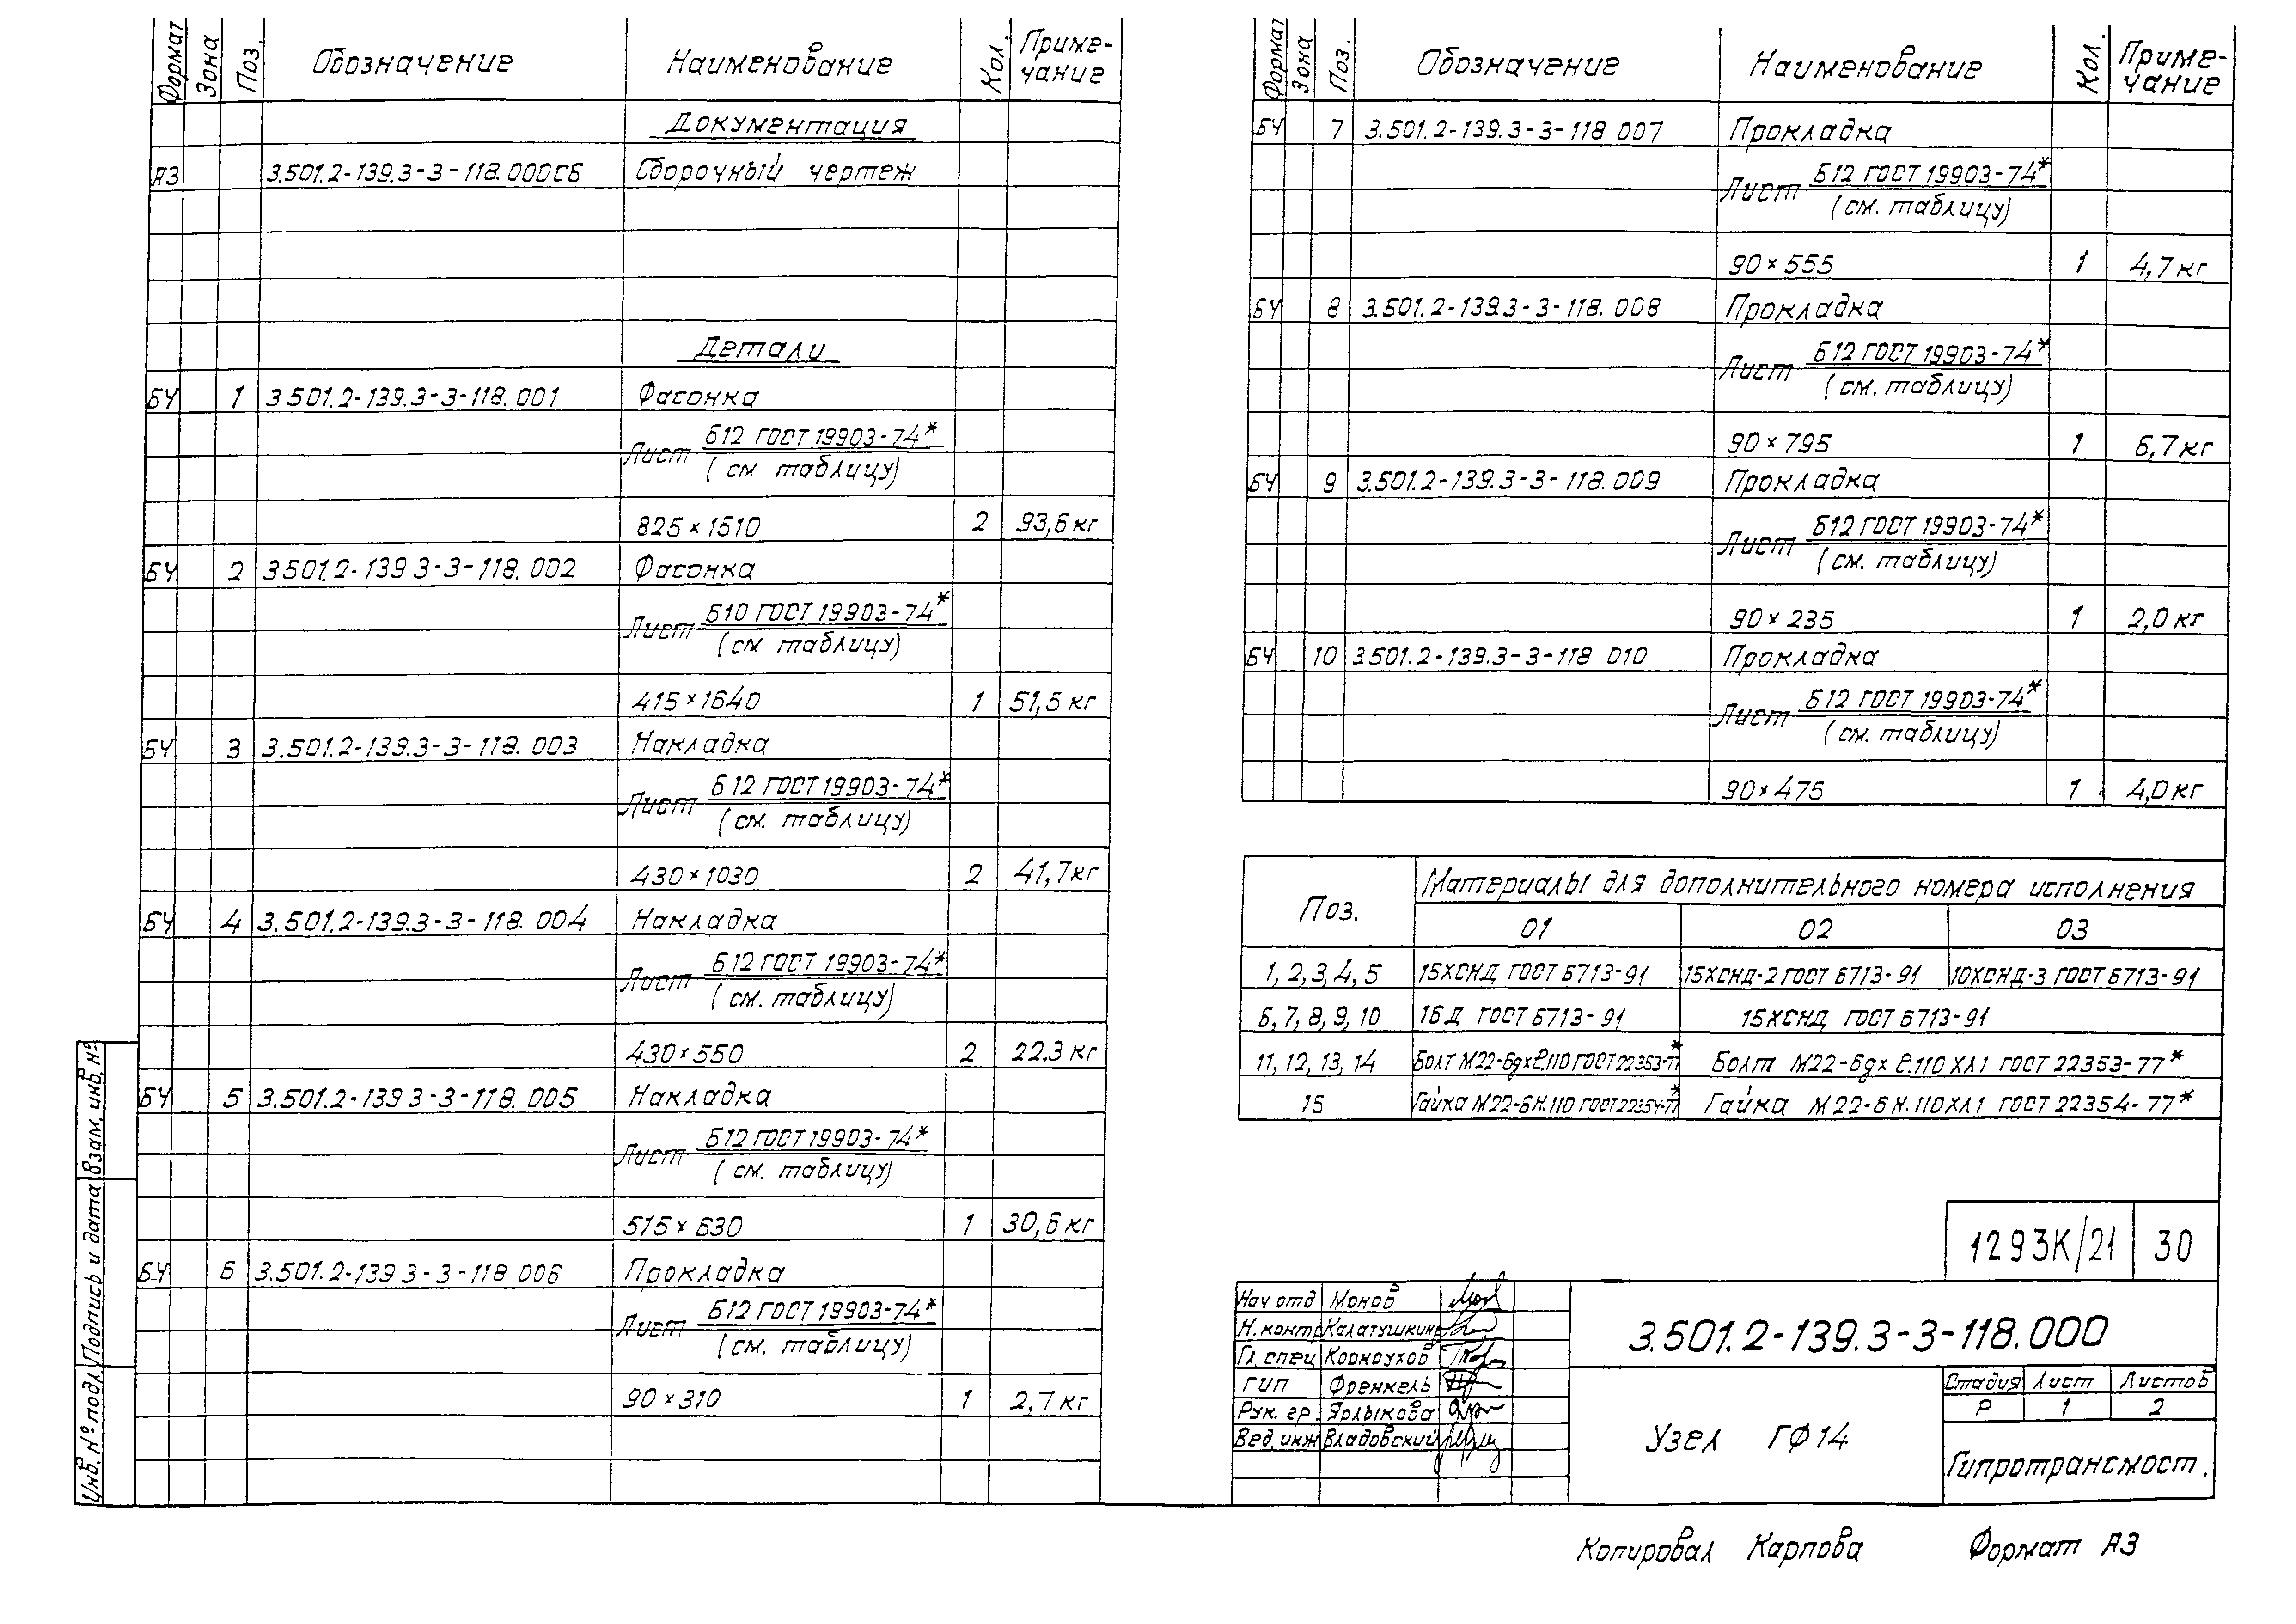 Формат Зона Поз. Обозначение Наименование Кол. Приме-
чание
Документация
А3 3.501.2-139.3-3-118.000СБ Сборочный чертеж
Детали
БЧ 1 3.501.2-139.3-3-118.001 Фасонка
Лист Б12 ГОСТ 19903-74*
(см таблицу)
825×1510 2 93,6 кг
БЧ 2 3501.2-139 3-3-118.002 Фасонка
Лист Б10 ГОСТ 19903-74*
(см таблицу)
415×1640 1 51,5 кг
БЧ 3 3.501.2-139.3-3-118.003 Накладка
Лист Б12 ГОСТ 19903-74*
(см. таблицу)
430×1030 2 41,7кг
БЧ 4 3.501.2-139.3-3-118.004 Накладка
Лист Б12 ГОСТ 19903-74*
(см. таблицу)
430×550 2 22,3 кг
БЧ 5 3.501.2-139 3-3-118.005 Накладка
Лист Б12 ГОСТ 19903-74*
(см. таблицу)
515×630 1 30,6 кг
БЧ 6 3.501.2-139 3-3-118 006 Прокладка
Лист Б12 ГОСТ 19903-74*
(см. таблицу)
90×310 1 2,7 кг
Формат Зона Поз. Обозначение Наименование Кол. Приме-
чание
БЧ 7 3.501.2-139.3-3-118 007 Прокладка
Лист Б12 ГОСТ 19903-74*
(см. таблицу)
90×555 1 4,7 кг
БЧ 8 3.501.2-139.3-3-118.008 Прокладка
Лист Б12 ГОСТ 19903-74*
(см. таблицу)
90×795 1 6,7 кг
БЧ 9 3.501.2-139.3-3-118.009 Прокладка
Лист Б12 ГОСТ 19903-74*
(см. таблицу)
90×235 1 2,0 кг
БЧ 10 3.501.2-139.3-3-118 010 Прокладка
Лист Б12 ГОСТ 19903-74*
(см. таблицу)
90×475 1 4,0 кг
Поз. Материалы для дополнительного номера исполнения
01 02 03
1, 2, 3, 4, 5 15ХСНД ГОСТ 6713-91 15ХСНД-2 ГОСТ 6713-91 10ХСНД-3 ГОСТ 6713-91
6, 7, 8, 9, 10 16Д ГОСТ 6713-91 15ХСНД ГОСТ 6713-91
11, 12, 13, 14 Болт М22-6gхℓ.110 ГОСТ 22353-77* Болт М22-6gх ℓ.110 ХЛ1 ГОСТ 22353-77*
15 Гайка М22-6Н.110 ГОСТ 22354-77* Гайка М22-6Н.110ХЛ1 ГОСТ 22354-77*
1293К/21 30
Нач отд Монов
Н.контр Калатушкин
Гл. спец Коркоухов
ГИП Френкель
Рук. гр. Ярлыкова
Вед. инж Владовский
3.501.2-139.3-3-118.000
Узел ГФ14
Стадия Лист Листов
Р 1 2
Гипротрансмост.
Инв. № подл Подпись и дата Взам. инв. №
Копировал Карпова Формат А3